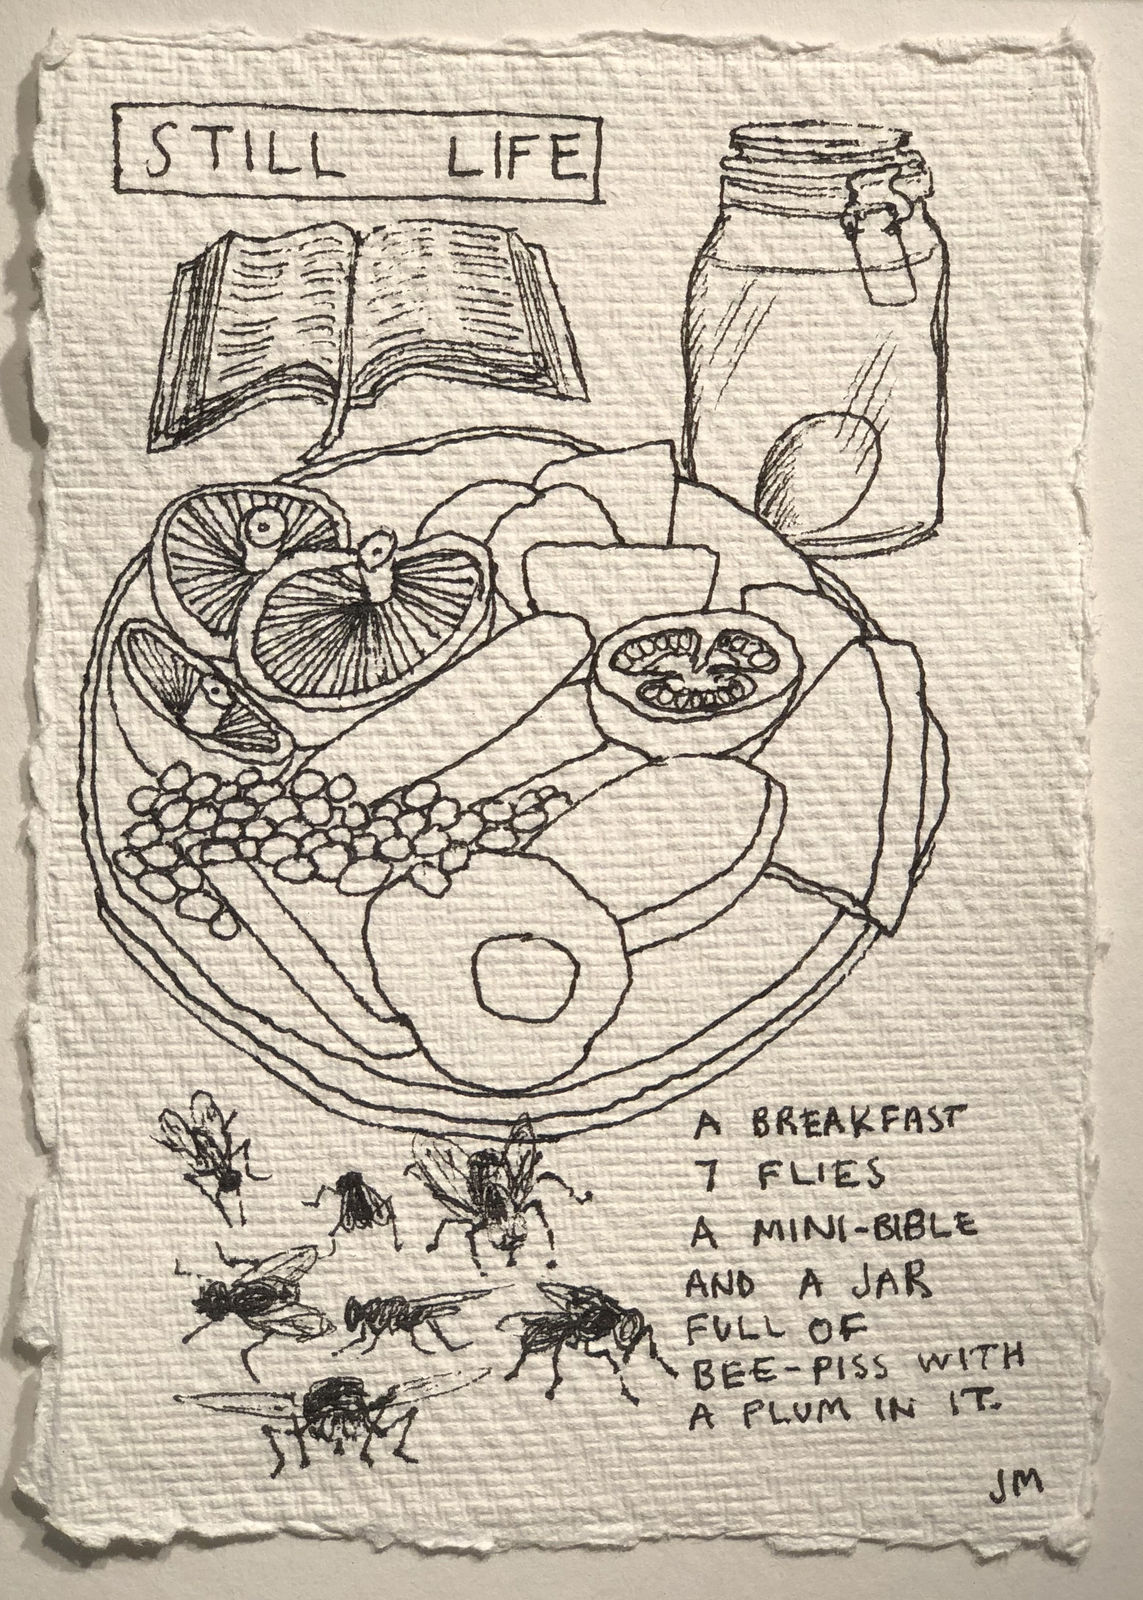 STILL LIFE
A BREAKFAST
7 FLIES
A MINI-BIBLE
AND A JAR
FULL OF
BEE-PISS WITH
A PLUM IN IT.
JM